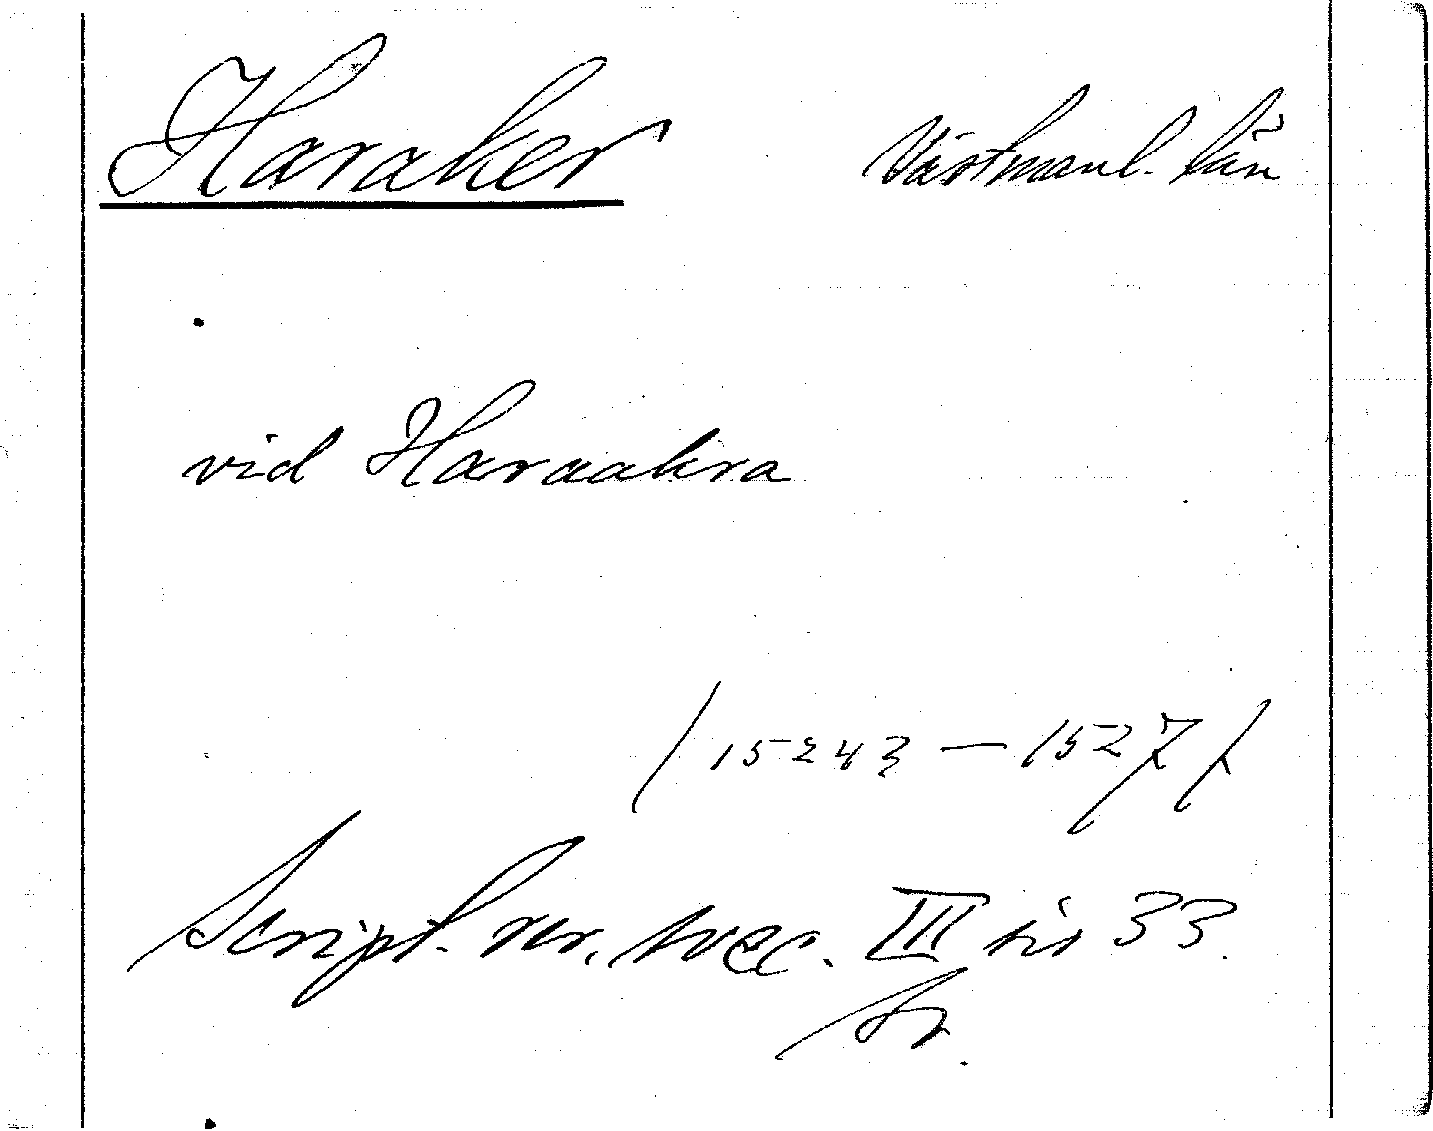 Haraker Västmanl. län
vid Haraakra
/15243 — 1527/
Script. rer. svec. III sis 33.